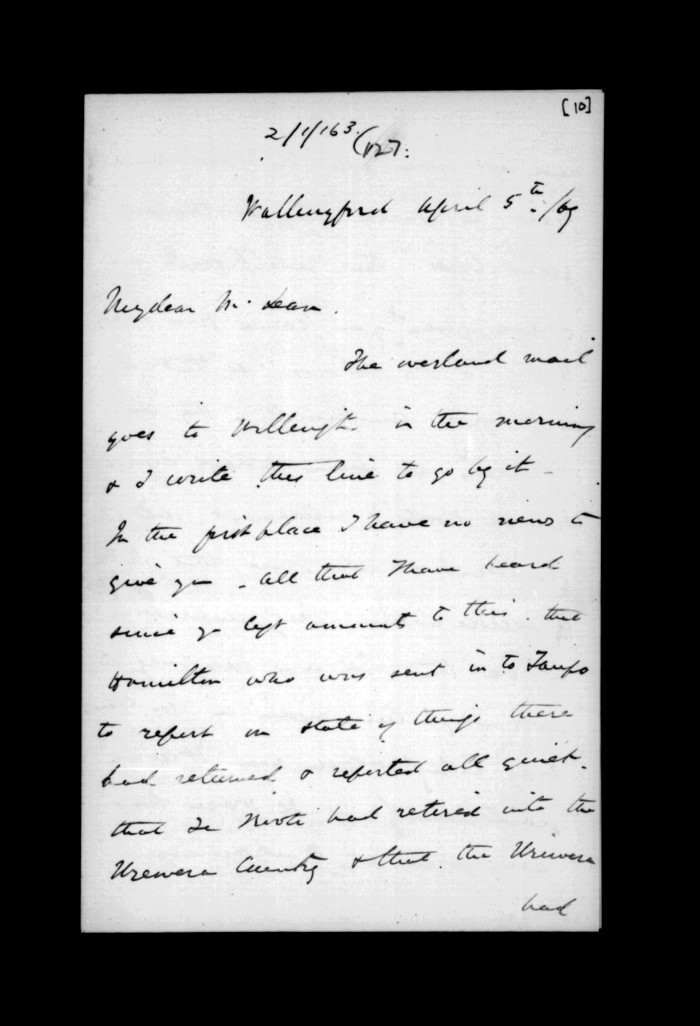 [10]
2/1/163 (127.
Wallingford April 5th /69
My dear McLean.
The overland mail
goes to Wellington in the morning
& I write this line to go by it -
In the first place I have no news to
give you - all that I have heard
since you left amounts to this. that
Hamilton who was sent in to Taupo
to report on state of things there
had returned & reported all quiet.
that Te Kooti had retired into the
Urewera Country & that the Urewera
had